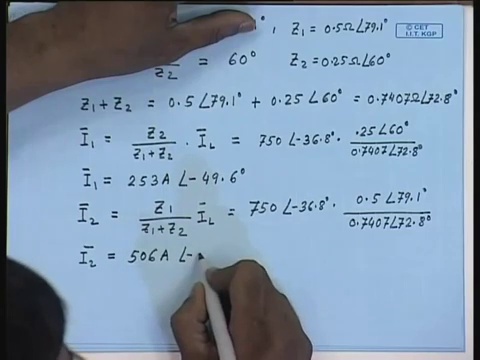 1°, Z₁ = 0.5Ω∠79.1°
© CET
I.I.T. KGP
Z₂ = 60° Z₂ = 0.25Ω∠60°
Z₁+Z₂ = 0.5∠79.1° + 0.25∠60° = 0.7407Ω∠72.8°
Ī₁ = Z₂/(Z₁+Z₂) · Ī_L = 750∠-36.8° · .25∠60°/0.7407∠72.8°
Ī₁ = 253A∠-49.6°
Ī₂ = Z₁/(Z₁+Z₂) Ī_L = 750∠-36.8° · 0.5∠79.1°/0.7407∠72.8°
Ī₂ = 506A∠-